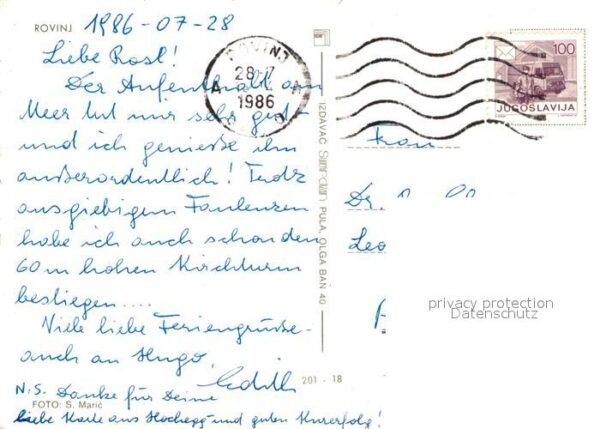 ROVINJ
1986-07-28
Liebe Rosl!
Der Aufenthalt am
Meer tut mir sehr gut
und ich genieße ihn
außerordentlich! Trotz
ausgiebigem Faulenzen
habe ich auch schon den
60 m hohen Kirchturm
bestiegen....
Viele liebe Feriengrüße
auch an Hugo,
Edith
N.S. Danke für Deine
liebe Karte aus Hochegg und guten Kurerfolg!
FOTO: S. Marić
201 - 18
IZDAVAČ PULA, OLGA BAN 40
ROVINJ
28.7
1986
100
JUGOSLAVIJA
Frau
Dr.
privacy protection
Datenschutz